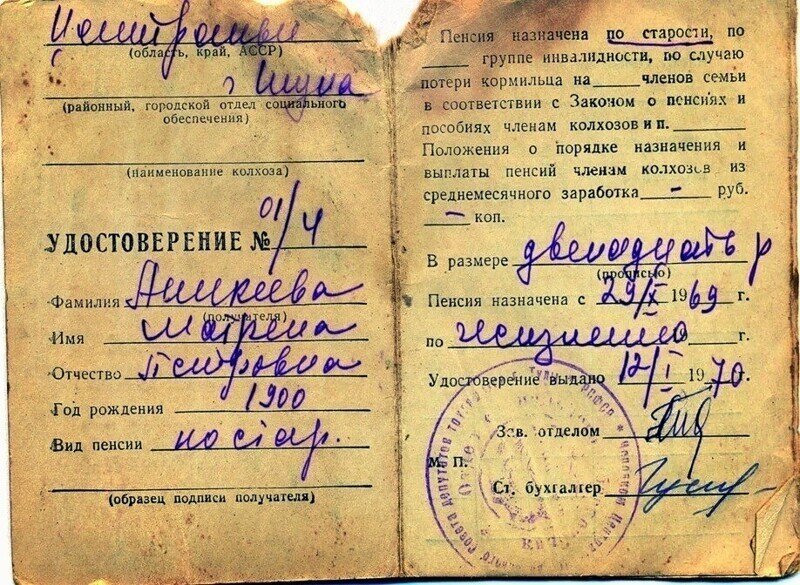 (область, край, АССР)
г Тула
(районный, городской отдел социального
обеспечения)
(наименование колхоза)
УДОСТОВЕРЕНИЕ № 01/4
Фамилия Аникеева
(получателя)
Имя Матрена
Отчество Петровна
Год рождения 1900
Вид пенсии по стар.
(образец подписи получателя)
Пенсия назначена по старости, по
группе инвалидности, по случаю
потери кормильца на членов семьи
в соответствии с Законом о пенсиях и
пособиях членам колхозов и п.
Положения о порядке назначения и
выплаты пенсий членам колхозов из
среднемесячного заработка — руб.
— коп.
В размере двенадцать р
(прописью)
Пенсия назначена с 29/X 1969 г.
по жизненно г.
Удостоверение выдано 12/I 1970
Зав. отделом
М. П.
Ст. бухгалтер